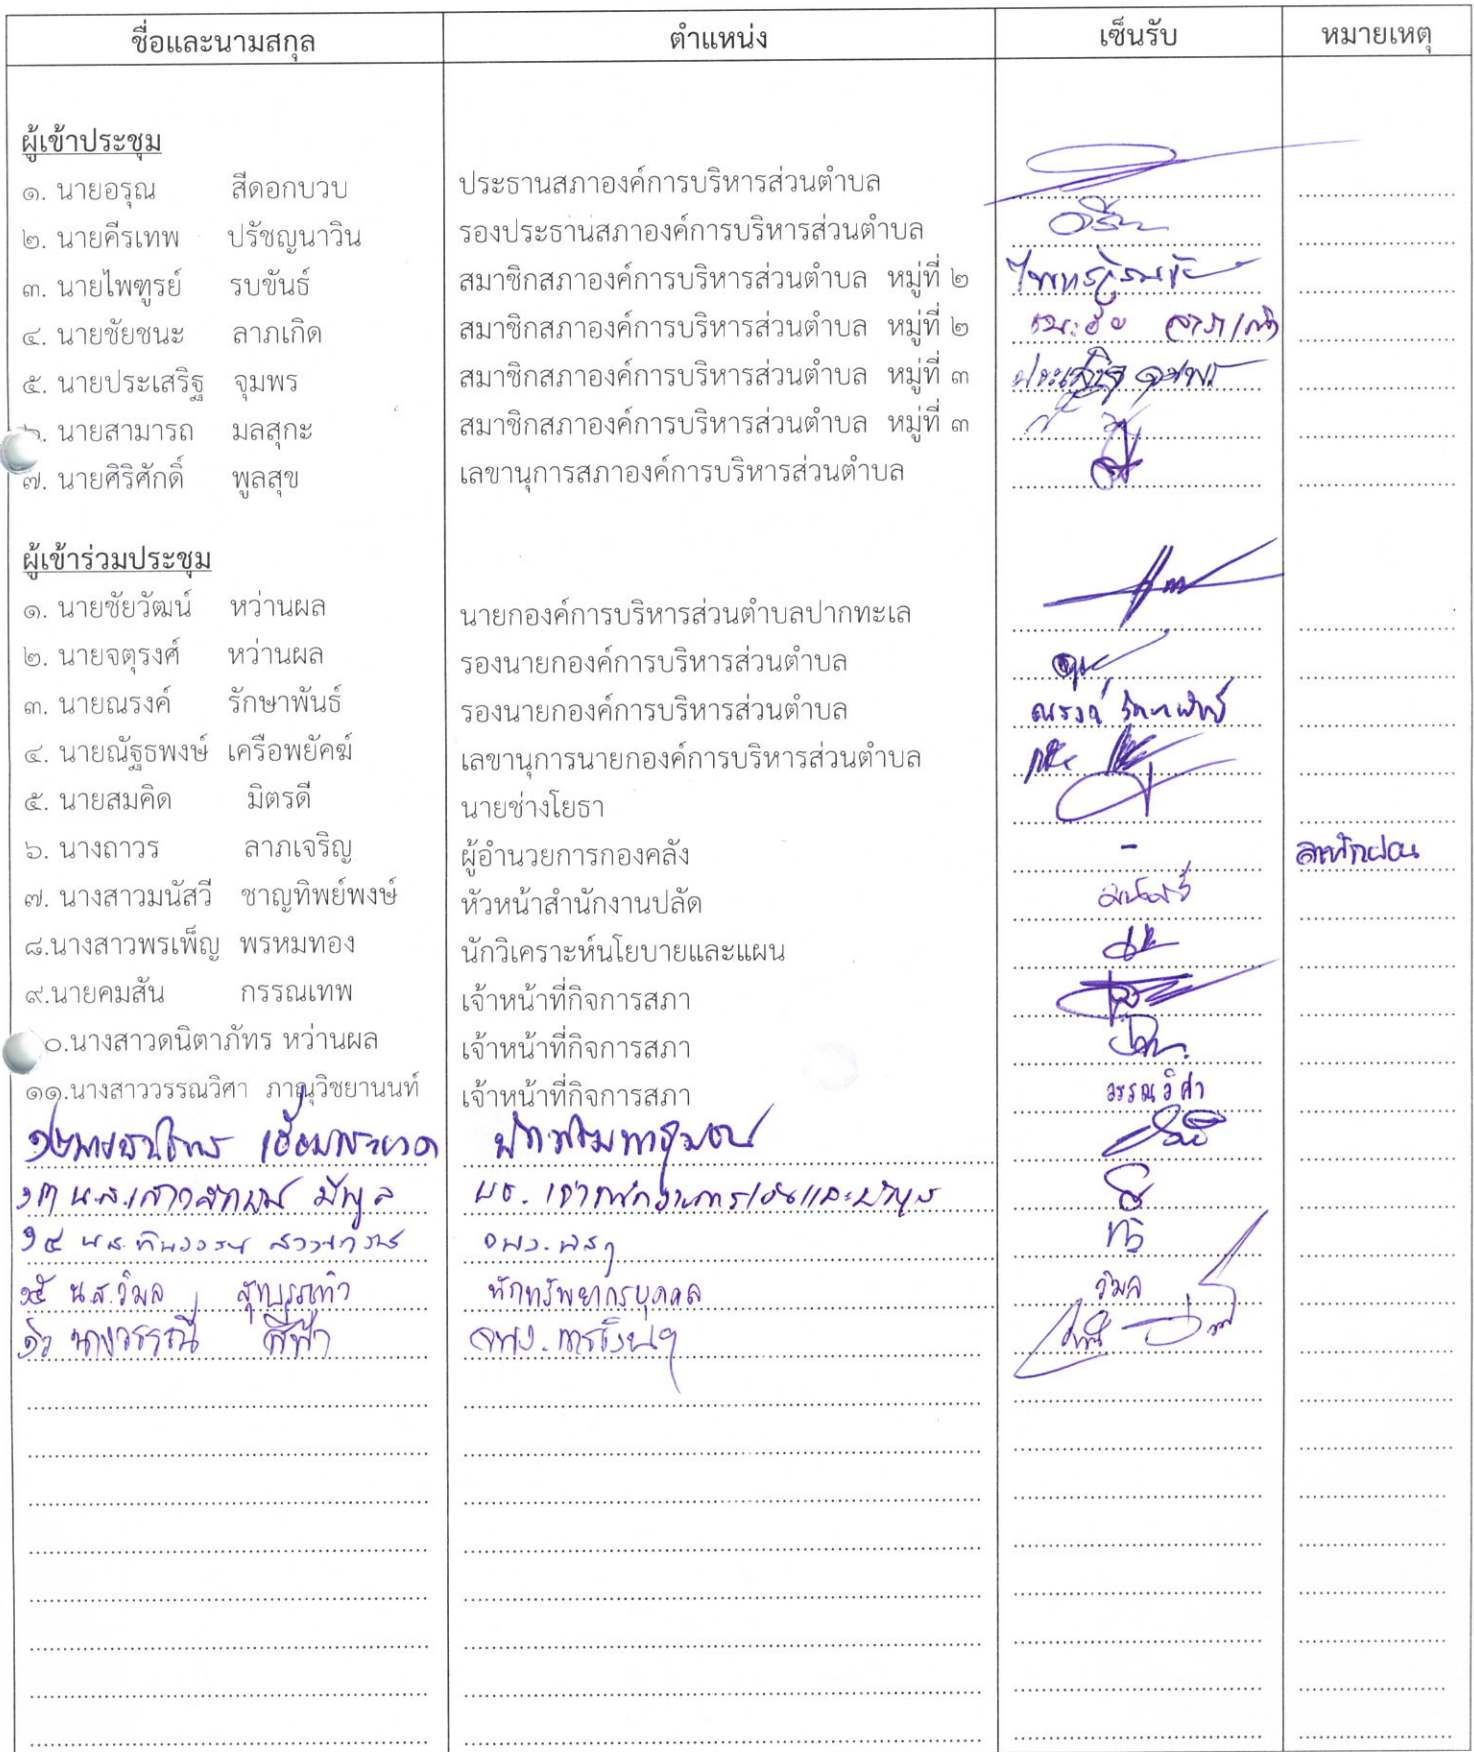 ชื่อและนามสกุล ตำแหน่ง เซ็นรับ หมายเหตุ
ผู้เข้าประชุม
๑. นายอรุณ สีดอกบวบ ประธานสภาองค์การบริหารส่วนตำบล
๒. นายคีรเทพ ปรัชญนาวิน รองประธานสภาองค์การบริหารส่วนตำบล
๓. นายไพฑูรย์ รบขันธ์ สมาชิกสภาองค์การบริหารส่วนตำบล หมู่ที่ ๒
๔. นายชัยชนะ ลาภเกิด สมาชิกสภาองค์การบริหารส่วนตำบล หมู่ที่ ๒
๕. นายประเสริฐ จุมพร สมาชิกสภาองค์การบริหารส่วนตำบล หมู่ที่ ๓ ประเสริฐ จุมพร
นายสามารถ มลสุกะ สมาชิกสภาองค์การบริหารส่วนตำบล หมู่ที่ ๓
๗. นายศิริศักดิ์ พูลสุข เลขานุการสภาองค์การบริหารส่วนตำบล
ผู้เข้าร่วมประชุม
๑. นายชัยวัฒน์ หว่านผล นายกองค์การบริหารส่วนตำบลปากทะเล
๒. นายจตุรงศ์ หว่านผล รองนายกองค์การบริหารส่วนตำบล
๓. นายณรงค์ รักษาพันธ์ รองนายกองค์การบริหารส่วนตำบล ณรงค์ รักษาพันธ์
๔. นายณัฐธพงษ์ เครือพยัคฆ์ เลขานุการนายกองค์การบริหารส่วนตำบล
๕. นายสมคิด มิตรดี นายช่างโยธา
๖. นางถาวร ลาภเจริญ ผู้อำนวยการกองคลัง - ลาพักผ่อน
๗. นางสาวมนัสวี ชาญทิพย์พงษ์ หัวหน้าสำนักงานปลัด มนัสวี
๘.นางสาวพรเพ็ญ พรหมทอง นักวิเคราะห์นโยบายและแผน
๙.นายคมสัน กรรณเทพ เจ้าหน้าที่กิจการสภา
๐.นางสาวดนิตาภัทร หว่านผล เจ้าหน้าที่กิจการสภา
๑๑.นางสาววรรณวิศา ภาณุวิชยานนท์ เจ้าหน้าที่กิจการสภา วรรณวิศา
๑๒
๑๓ น.ส.เสาวลักษณ์ มีพูล ผช. เจ้าพนักงานการเงินและบัญชี
๑๔ น.ส.
๑๕ น.ส.วิมล นักทรัพยากรบุคคล วิมล
๑๖ นางวรรณี ศรีฟ้า จพง. การเงินฯ